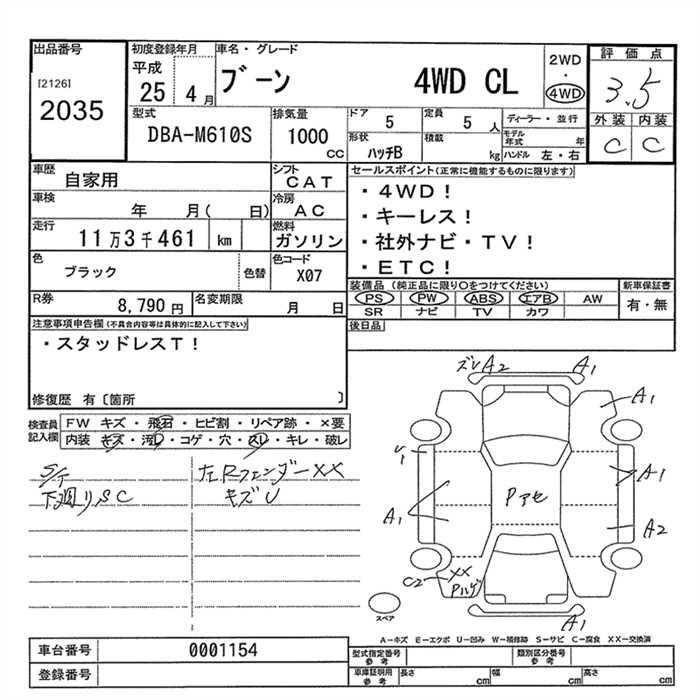 出品番号
[2126]
2035
初度登録年月
平成
25 4月
車名・グレード
ブーン 4WD CL
2WD
・
4WD
評価点
3.5
外装 内装
C C
型式
DBA-M610S
排気量
1000
CC
ドア 5
定員 5 人
形状 ハッチB
積載 kg
ディーラー・並行
モデル年式 年
ハンドル 左・右
車歴 自家用
シフト CAT
車検 年 月( 日)
冷房 AC
走行 11万3千461 km
燃料 ガソリン
色 ブラック
色替
色コード X07
R券 8,790円
名変期限 月 日
セールスポイント(正常に機能するものに限ります)
・4WD!
・キーレス!
・社外ナビ・TV!
・ETC!
装備品 (純正品に限り○をつけてください)
PS PW ABS エアB AW
SR ナビ TV カワ
新車保証書
有・無
後日品
注意事項申告欄(不具合内容等は具体的に記入して下さい)
・スタッドレスT!
修復歴 有〔箇所 〕
検査員記入欄
FW キズ・飛石・ヒビ割・リペア跡・×要
内装 キズ・汚レ・コゲ・穴・スレ・キレ・破レ
S/T
下廻りSC
左Rフェンダー××
キズU
ズレA2 A1
A1
U1
A1
A1
Pアセ
A2
C2 ××
Pハゲ
A1
スペア
A-キズ E-エクボ U-凹み W-補修跡 S-サビ C-腐食 XX-交換済
車台番号 0001154
登録番号
型式指定番号 参考
類別区分番号 参考
車庫証明用 参考
長さ cm
幅 cm
高さ cm